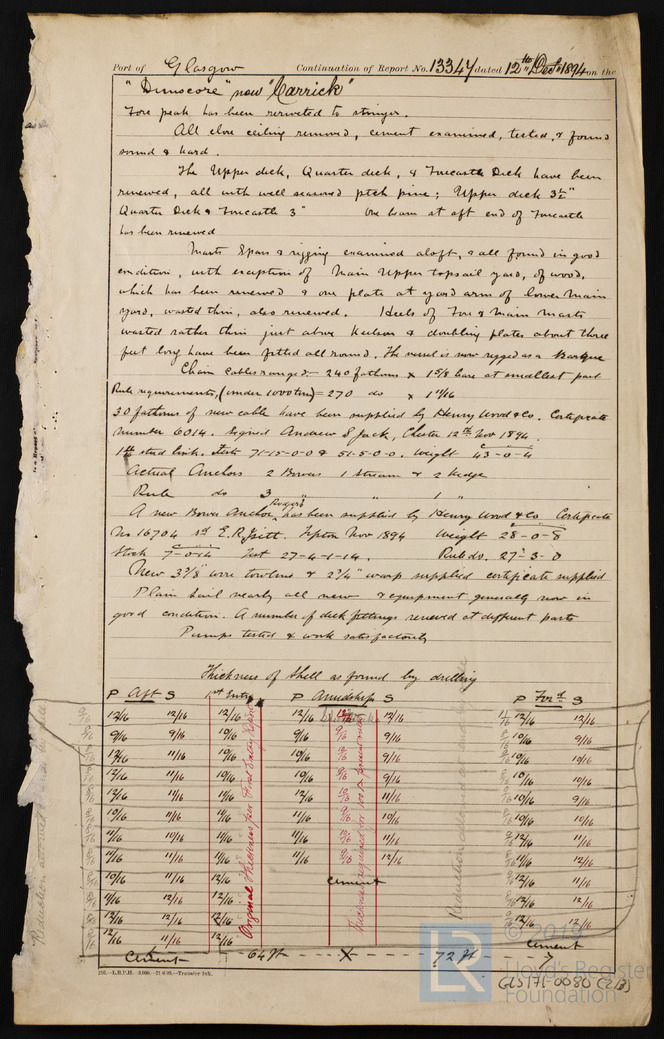 Port of Glasgow Continuation of Report No. 13347 dated 12th Decr 1894 on the
"Dunscore" now "Carrick"
Fore peak has been reriveted to stringer.
All close ceiling removed, cement examined, tested, & found
sound & hard.
The Upper deck, Quarter deck, & Forecastle Deck have been
renewed, all with well seasoned pitch pine; Upper deck 3½"
Quarter Deck & Forecastle 3" One beam at aft end of Forecastle
has been renewed
Masts Spars & rigging examined aloft, & all found in good
condition, with exception of Main Upper topsail yard, of wood,
which has been renewed & one plate at yard arm of lower Main
yard, wasted thin, also renewed. Heels of Fore & Main Masts
wasted rather thin just above Keelson & doubling plates about three
feet long have been fitted all round. The vessel is now rigged as a Barque
Chain Cables ranged:— 240 fathoms × 1 5/8 bare at smallest part
Rule requirements, (under 1000 tons) = 270 do × 1 11/16
30 fathoms of new cable have been supplied by Henry Wood & Co. Certificate
number 6014. Signed Andrew S Jack, Chester 12th Nov 1894.
1 11/16 stud link. Tests 71-15-0-0 & 51-5-0-0. Weight 43-0-4
Actual Anchors 2 Bowers 1 Stream & 2 Kedge
Rule do 3 " " 1 "
A new Bower Anchor, Rogers' has been supplied by Henry Wood & Co Certificate
No 16704 sd E. R. Tipton Nov 1894 Weight 28-0-8
Stock 7-0-14 Test 27-4-1-14. Rule do. 27-3-0
New 3 3/8 wire towline & 2 3/4" warp supplied certificate supplied
Plain Sail nearly all new & equipment generally now in
good condition. A number of deck fittings renewed at different parts
Pumps tested & work satisfactorily
Thickness of Shell as found by drilling
P Aft S 1st Entry P Amidships S P Ford S
12/16 12/16 12/16 12/16 12/16 12/16 12/16
9/16 9/16 10/16 9/16 9/16 10/16 9/16
11/16 10/16 10/16 9/16 10/16 10/16
12/16 11/16 10/16 10/16 9/16 10/16 10/16
12/16 11/16 11/16 12/16 11/16 10/16 9/16
10/16 11/16 11/16 11/16 10/16 10/16 10/16
11/16 10/16 11/16 11/16 11/16 12/16 11/16
11/16 11/16 11/16 11/16 12/16 11/16 12/16
10/16 11/16 12/16 cement 12/16 11/16
9/16 12/16 12/16 12/16 12/16
12/16 12/16 12/16 12/16 12/16
12/16 11/16 12/16
Original Thickness per First Entry Report
Cement 64 ft × 72 ft Cement
© 2019
LR
Lloyd's Register
Foundation
GLS171-0080 (2/3)